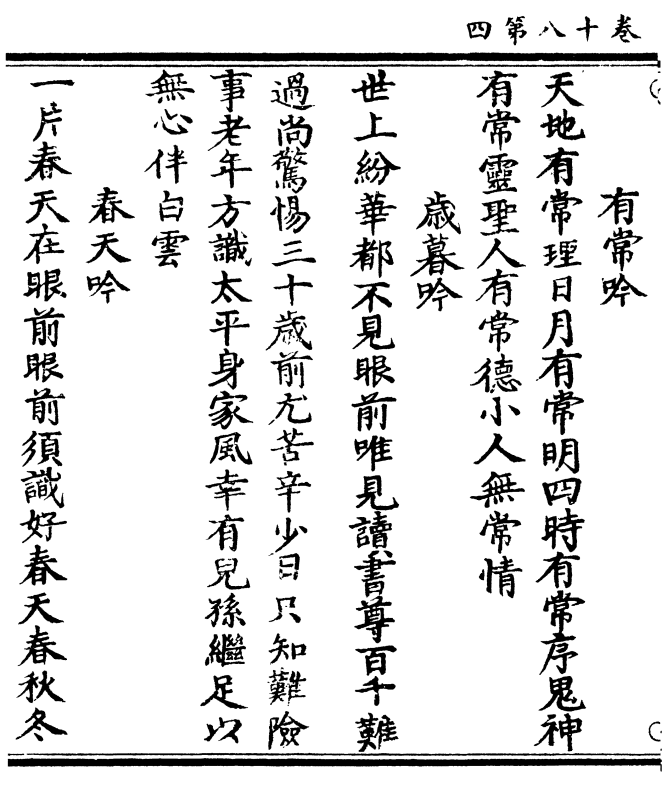 四第八十卷
有常吟
天地有常理日月有常明四時有常序鬼神
有常靈聖人有常德小人無常情
歲暮吟
世上紛華都不見眼前唯見讀書尊百千難
過尚驚惕三十歲前尤苦辛少日只知難險
事老年方識太平身家風幸有兒孫繼足以
無心伴白雲
春天吟
一片春天在眼前眼前須識好春天春秋冬